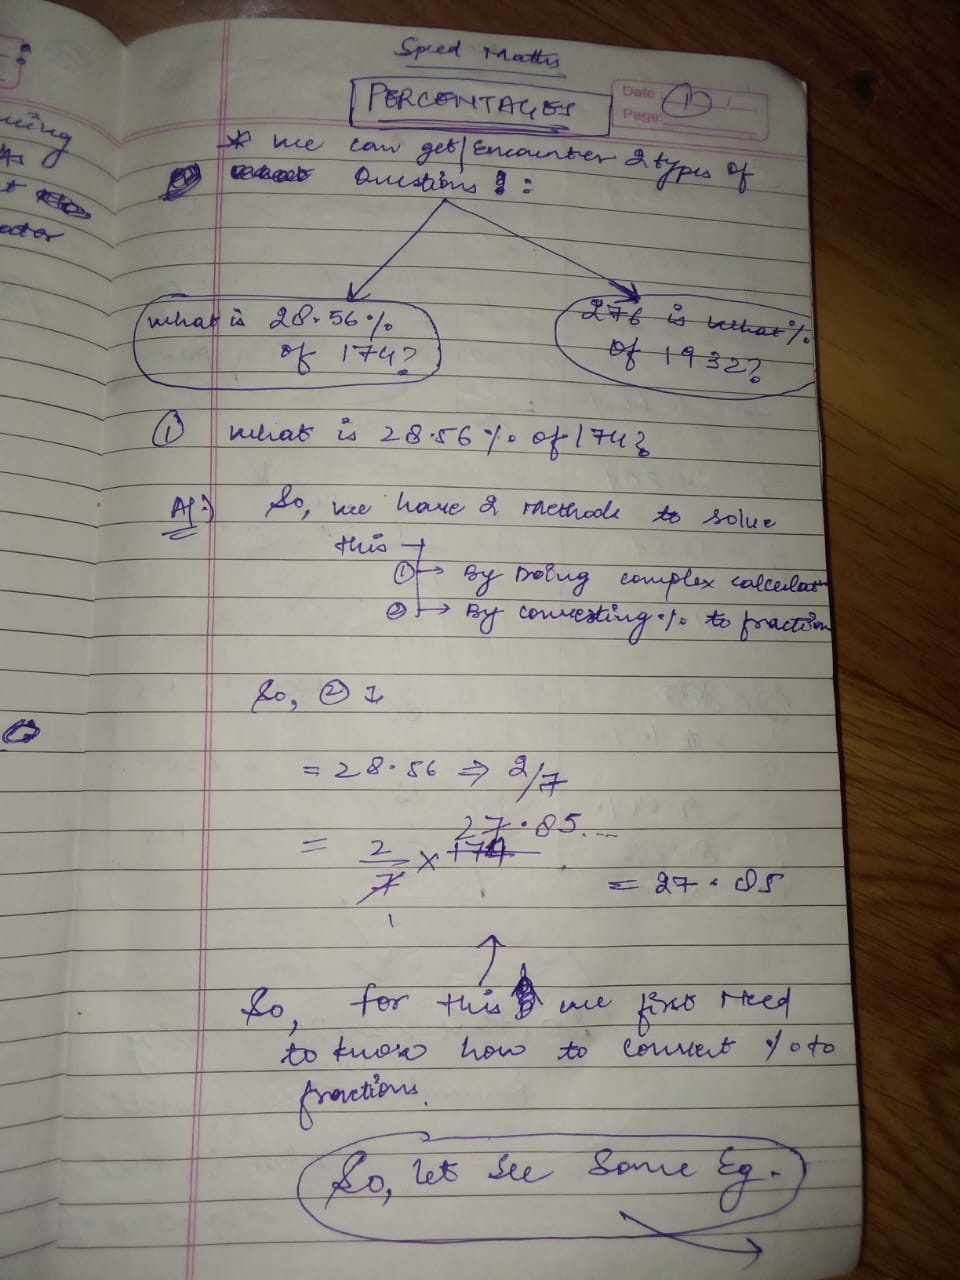 Speed Maths
PERCENTAGES
Date
Page:
1
* We can get/Encounter 2 types of
Questions :
What is 28.56%
of 174?
276 is what %
of 1932?
① What is 28.56 % of 174?
A):) So, we have 2 methods to solve
this
① → By Doing complex calculat
② → By converting % to fraction
So, ② :
= 28.56 ⇒ 2/7
27.85...
= 2/7 × 174
1
= 27.85
So, for this we first need
to know how to convert % to
fractions.
So, let see some Eg.
ning